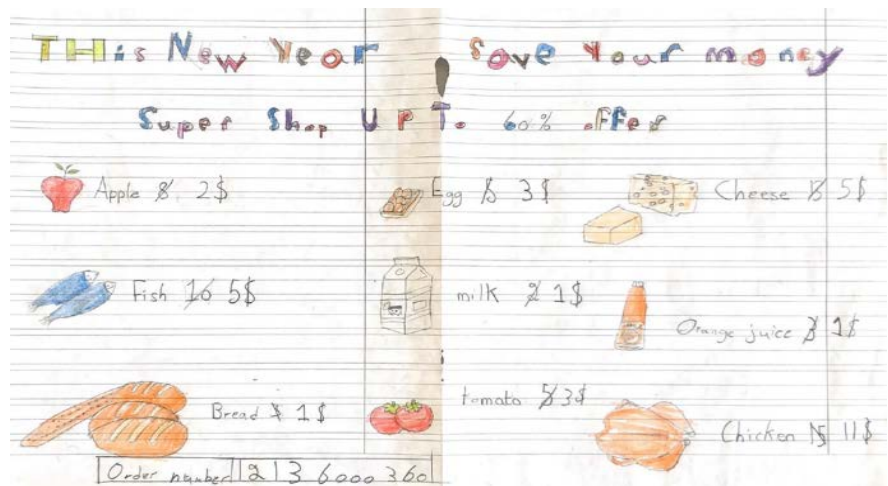 THis New Year ! Save Your money
Super Shop UPT. 60% offer
Apple 8 2$
Egg 3$
Cheese 5$
Fish 16 5$
milk 2 1$
Orange juice 3 1$
Bread 1$
tomato 5 3$
Chicken 11$
Order number 12136000360